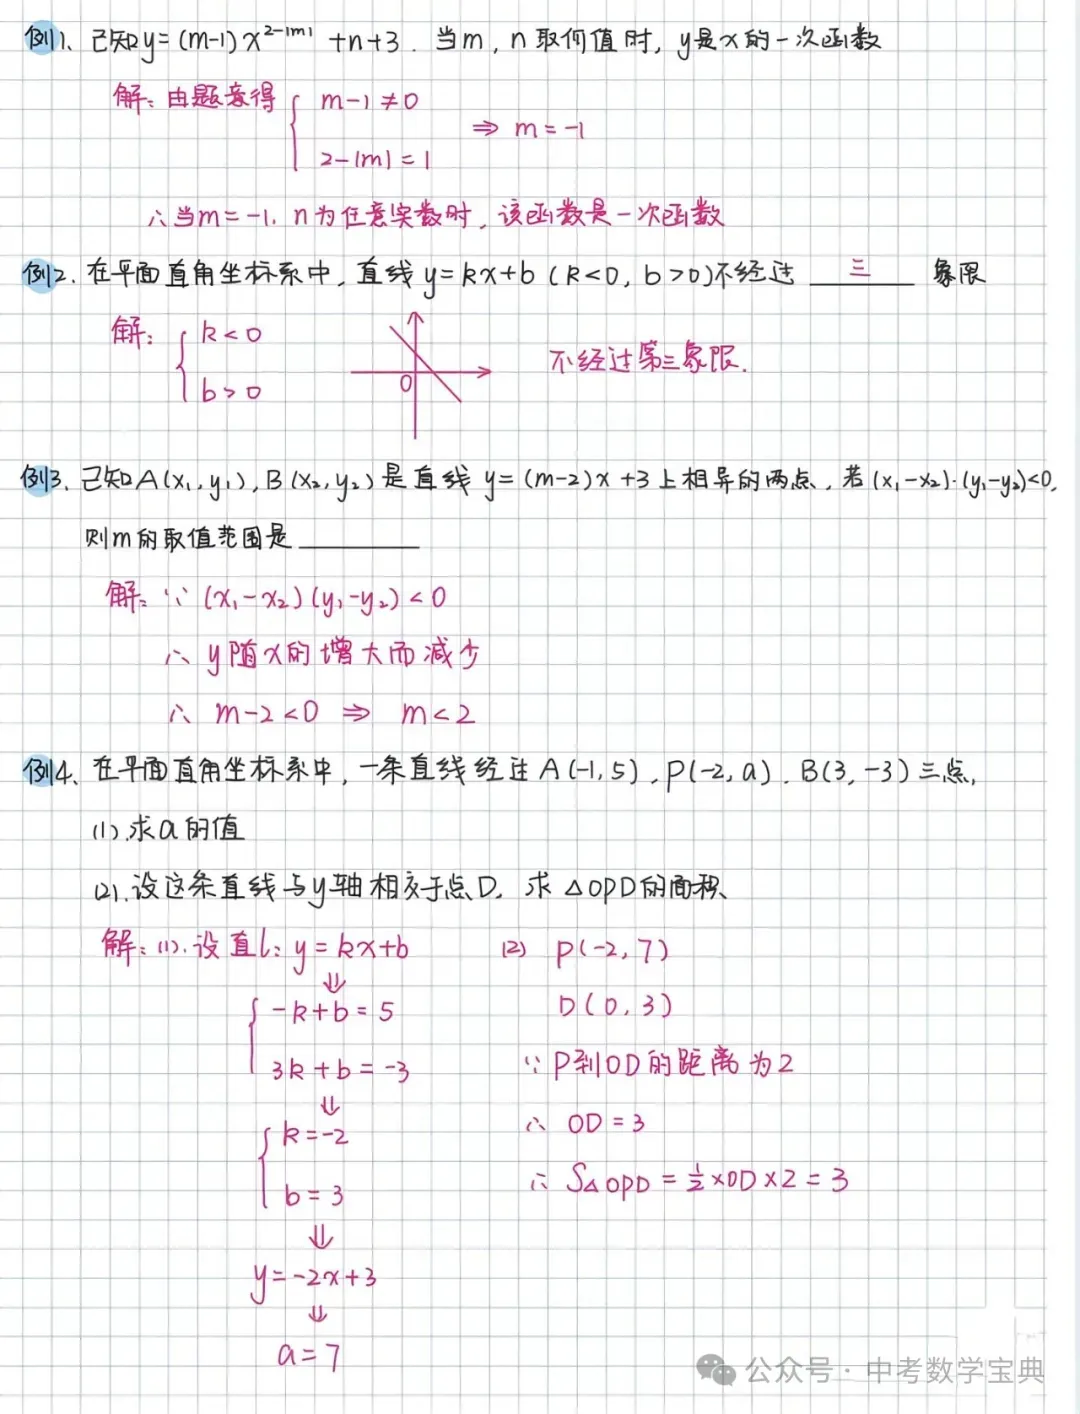 例1、已知y=(m-1)x^{2-|m|}+n+3. 当m, n取何值时, y是x的一次函数
解: 由题意得 { m-1≠0
2-|m|=1 ⇒ m=-1
∴当m=-1. n为任意实数时, 该函数是一次函数
例2. 在平面直角坐标系中, 直线y=kx+b (k<0, b>0)不经过 三 象限
解: { k<0
b>0
0
不经过第三象限.
例3、已知A(x₁, y₁), B(x₂, y₂)是直线 y=(m-2)x+3上相异的两点, 若(x₁-x₂)·(y₁-y₂)<0,
则m的取值范围是
解: ∵ (x₁-x₂)(y₁-y₂)<0
∴ y随x的增大而减少
∴ m-2<0 ⇒ m<2
例4、在平面直角坐标系中, 一条直线经过A(-1,5), P(-2,a), B(3,-3)三点,
(1).求a的值
(2).设这条直线与y轴相交于点D, 求△OPD的面积
解: (1).设直l: y=kx+b
⇓
{ -k+b=5
3k+b=-3
⇓
{ k=-2
b=3
⇓
y=-2x+3
⇓
a=7
(2) P(-2,7)
D(0,3)
∵ P到OD的距离为2
∴ OD=3
∴ S△OPD=½×OD×2=3
公众号·中考数学宝典